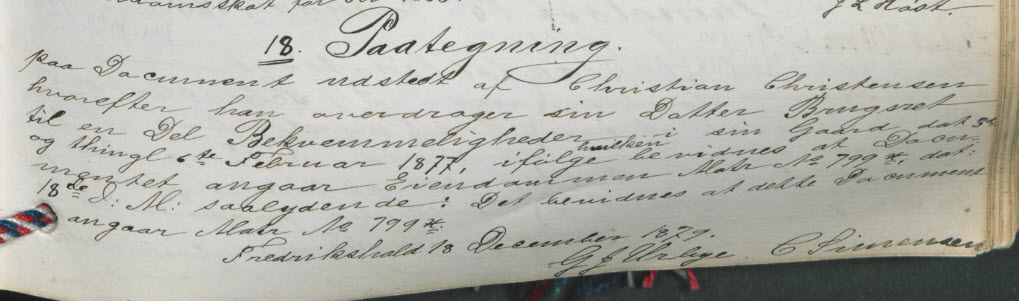 skat for
J L Høst.
18. Paategning.
paa Document udstedt af Christian Christensen
hvorefter han overdrager sin Datter Brugsret
til en Del Bekvemmeligheder i sin Gaard, dat 3die
og thingl 6te Februar 1877, ifølge hvilken bevidnes at Docu-
mentet angaar Eiendommen Matr No 799 dat:
18de d: M: saalydende: Det bevidnes at dette Document
angaar Matr No 799
Fredrikshald 18 December 1879.
G J C Simensen